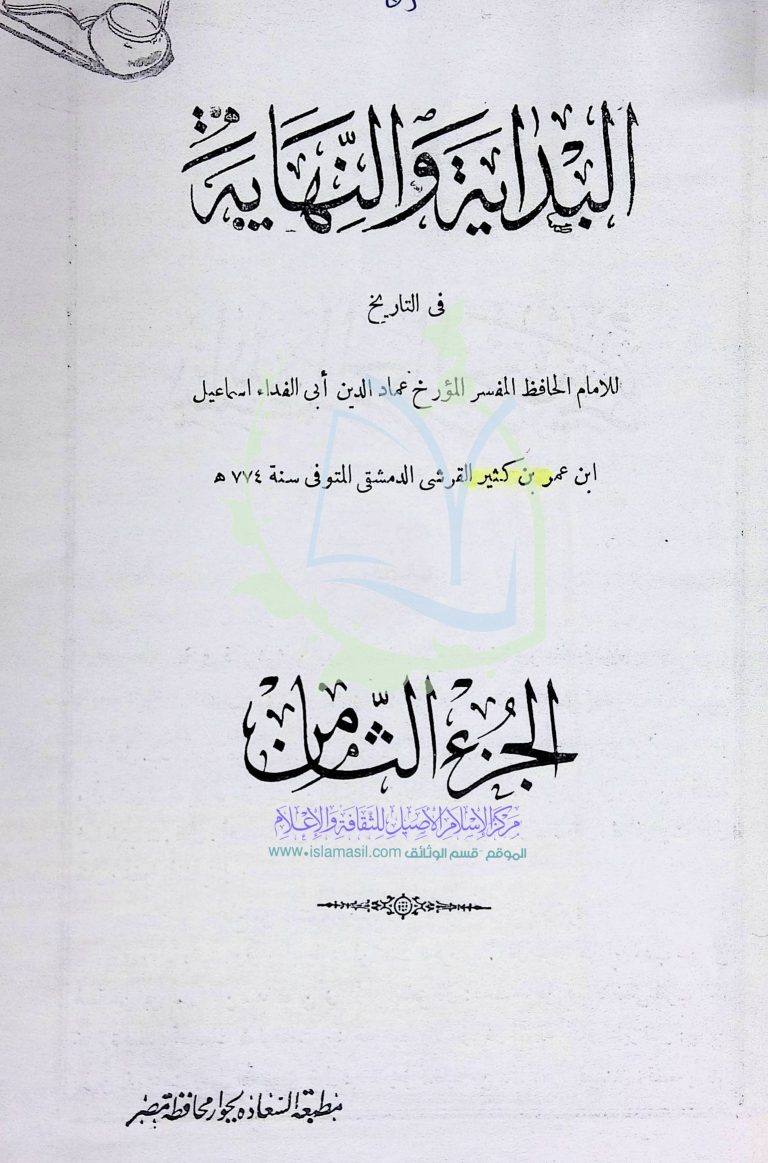 البْدَايَة وَالنِّهَايَة
فى التاريخ
للامام الحافظ المفسر المؤرخ عماد الدين أبى الفداء اسماعيل
ابن عمر بن كثير القرشى الدمشقى المتوفى سنة ٧٧٤ ه
الجُزءُ الثَّامن
مركز الإسلام الأصيل للثقافة والإعلام
الموقع - قسم الوثائق www.islamasil.com
مطبعة السعادة بجوار محافظة مصر